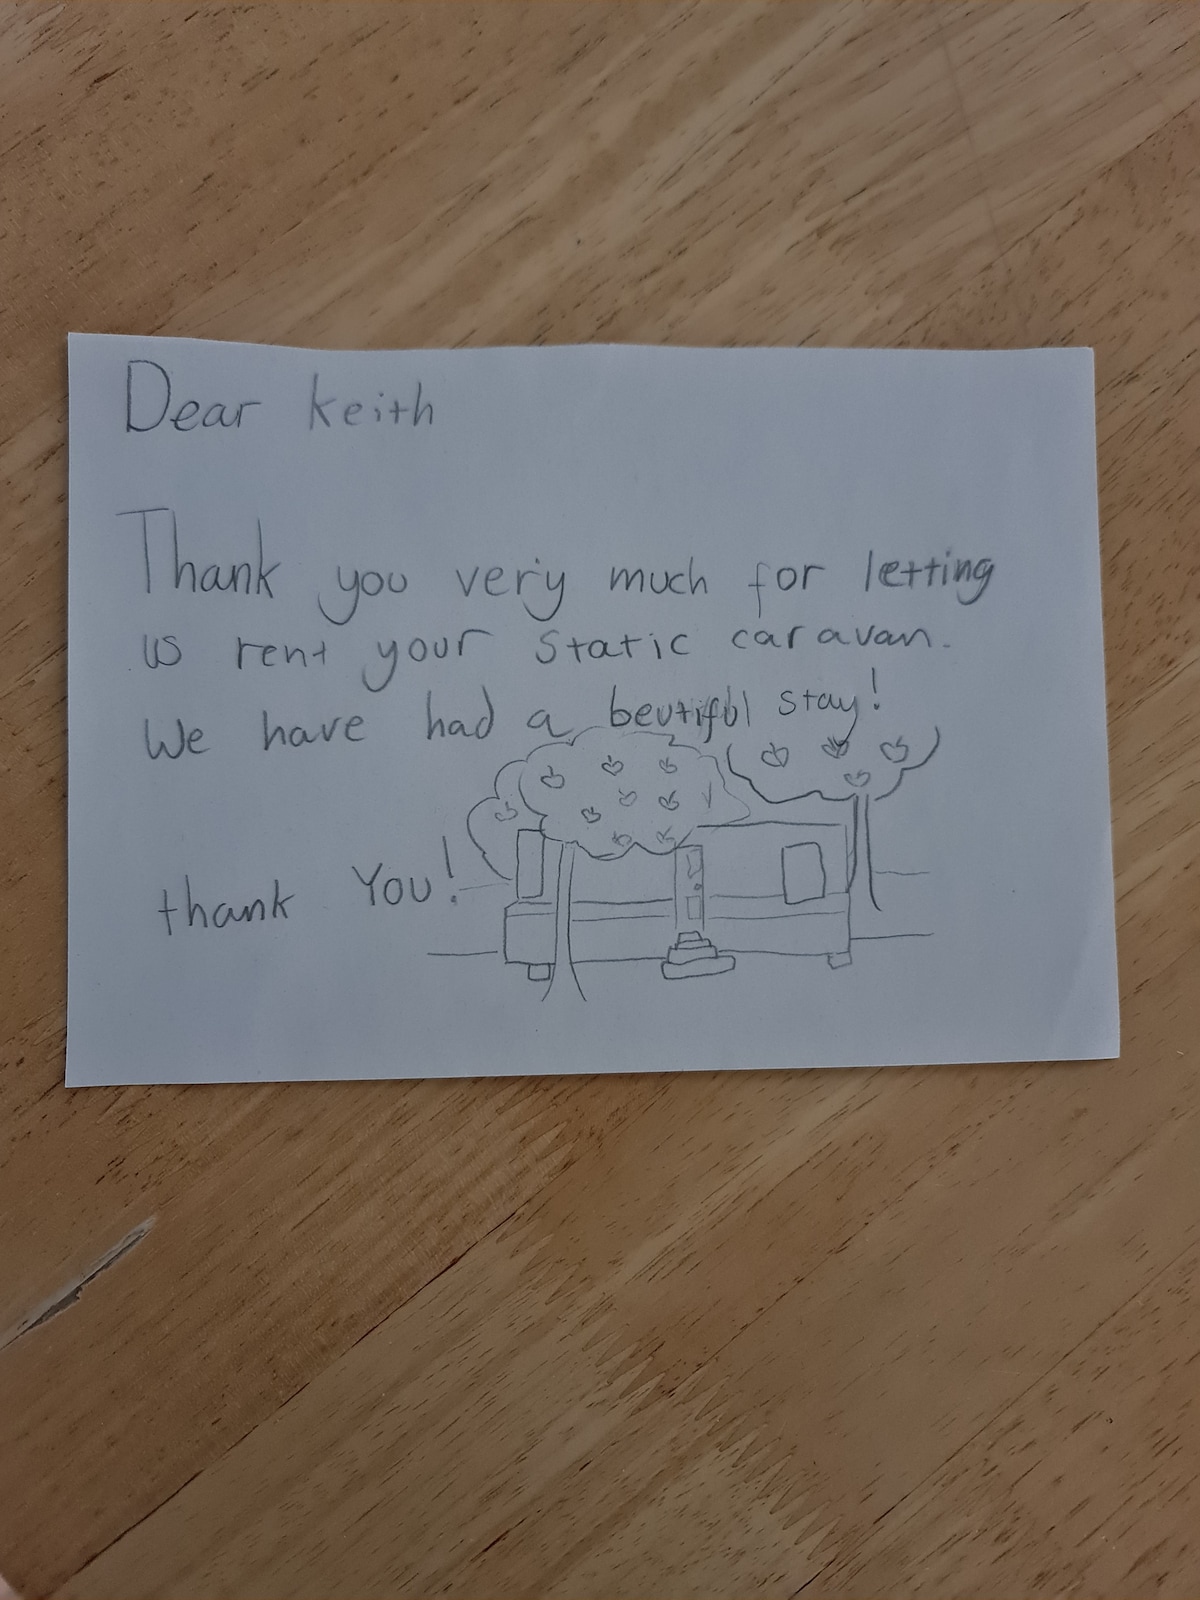 Dear keith
Thank you very much for letting
us rent your static caravan.
We have had a beutiful stay!
thank You!